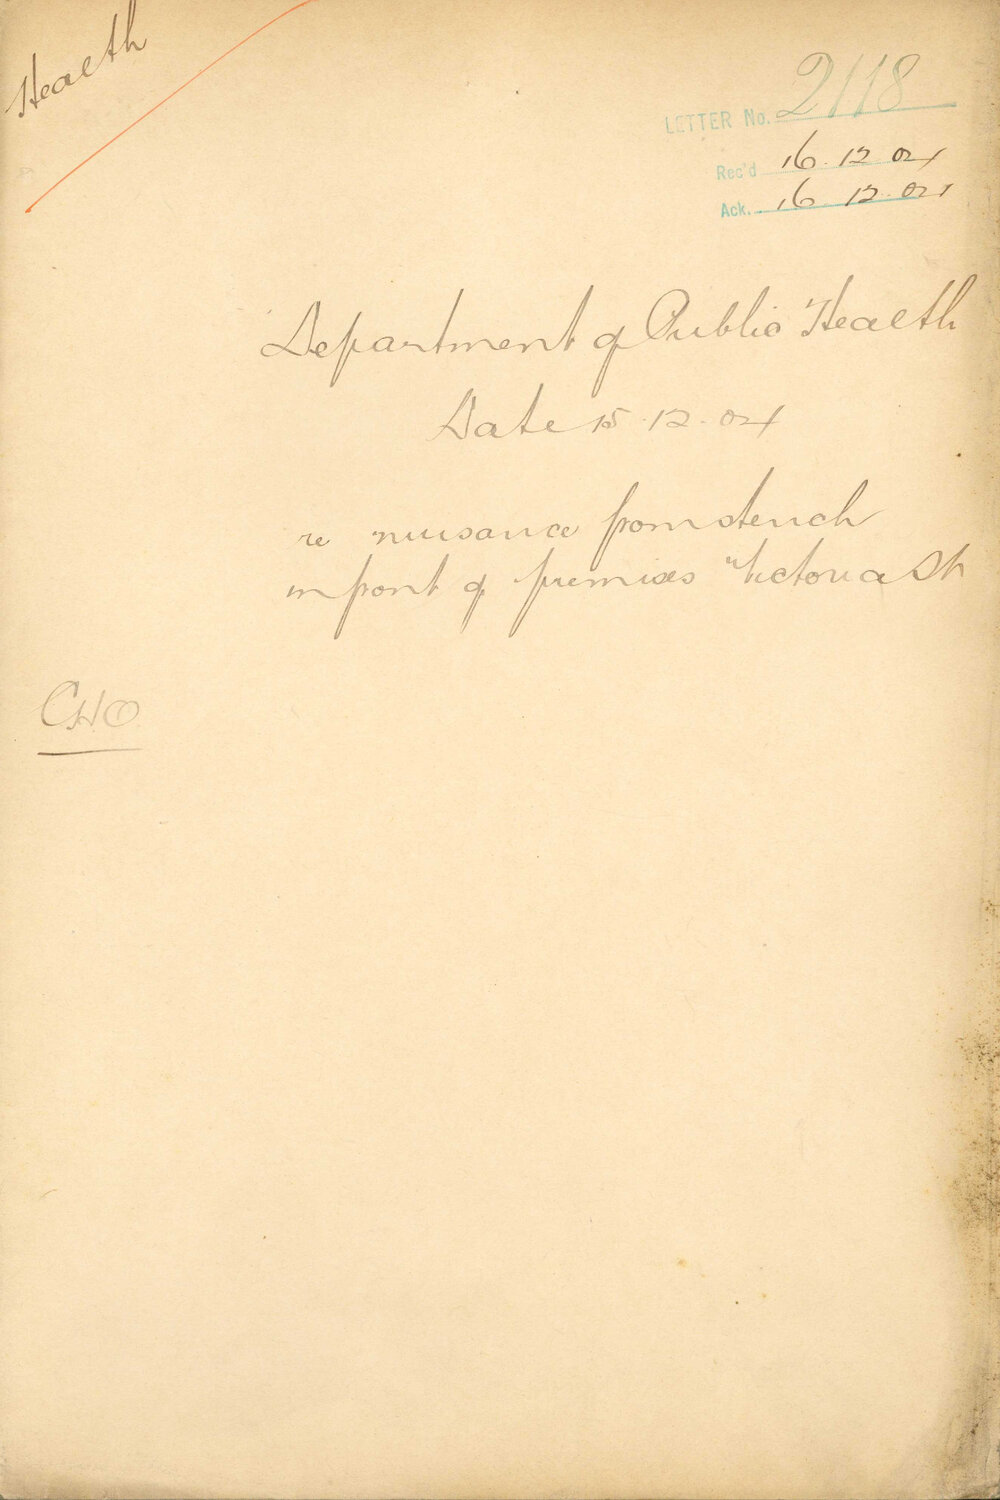 Health
LETTER No. 2118
Rec'd 16.12.04
Ack. 16.12.04
Department of Public Health
Date 15.12.04
re nuisance from stench
in front of premises Victoria St
CHO